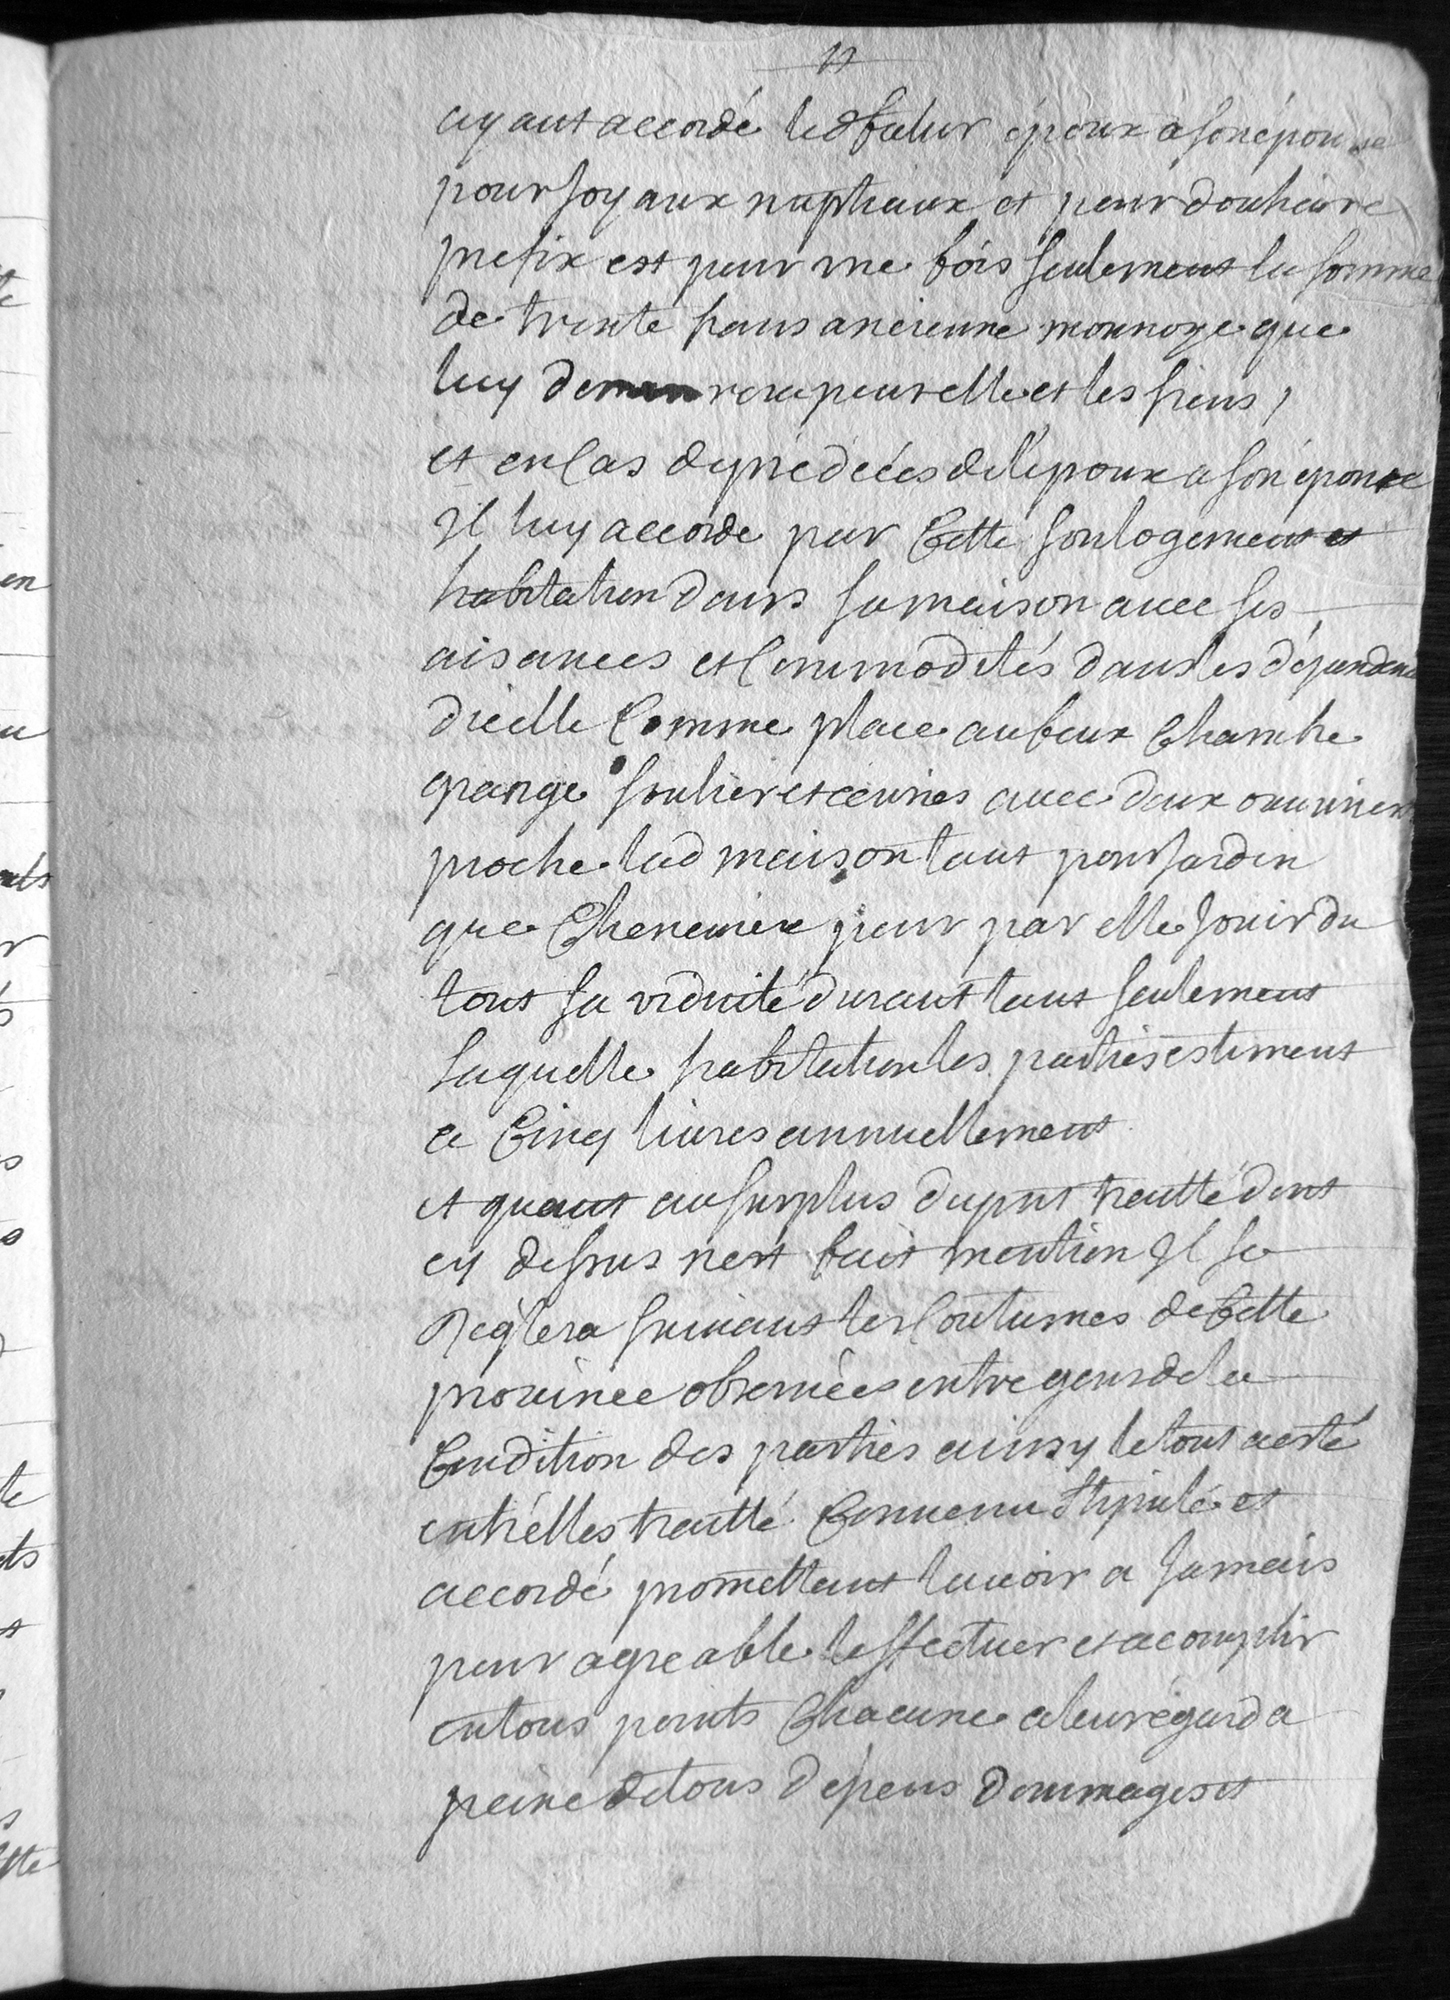 11
ayant accordé led futur époux a son épouse
pour Joyaux nuptiaux et pour douhaire
prefix est pour une fois seulement la somme
de trente frans ancienne monnoye que
luy demeurera pour elle et les siens,
et en Cas de prédécés de lépoux a son épouse
Il luy accorde par Cette son logement et
habitation dans sa maison avec ses
aisances et Commodités dans les dépendances
dicelle Comme place au feux Chambre
grange soulier et écuries avec deux ouvrieres
proche lad maison tant pour Jardin
que Cheneviere pour par elle Jouir du
tout sa viduité durant tant seulement
Laquelle habitation les parties estiment
a Cinq livres annuellement
et quant au surplus du pnt traitté dont
cy dessus nest fait mention Il se
Réglera suivant les Coutumes de Cette
province observées entre gens de la
Condition des parties ainsy le tout a esté
entr'elles traitté Convenu Stipulé et
accordé promettant lavoir a Jamais
pour agreable leffectuer et acomplir
en tous points Chacune a leur égard a
peine de tous dépens dommages et